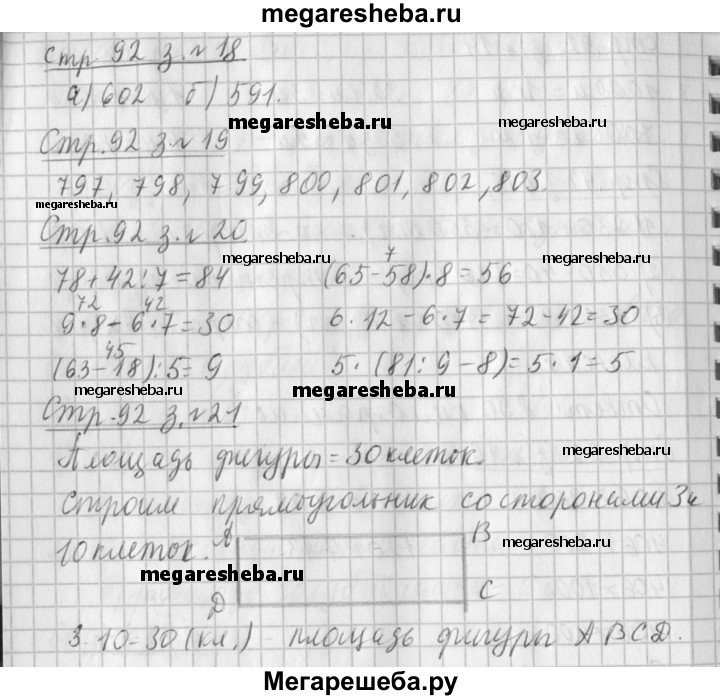 megaresheba.ru
стр. 92 з. № 18
а) 602 б) 591.
megaresheba.ru
megaresheba.ru
Стр. 92 з № 19
797, 798, 799, 800, 801, 802, 803
megaresheba.ru
Стр. 92 з. № 20
megaresheba.ru
megaresheba.ru
78 + 42 : 7 = 84 (65 - 58) · 8 = 56
7
72 42
9 · 8 - 6 · 7 = 30 6 · 12 - 6 · 7 = 72 - 42 = 30
45
(63 - 18) : 5 = 9 5 · (81 : 9 - 8) = 5 · 1 = 5
megaresheba.ru
megaresheba.ru
Стр. 92 з. № 21
Площадь фигуры = 30 клеток.
megaresheba.ru
Строим прямоугольник со сторонами 3 и
10 клеток.
A B
megaresheba.ru
megaresheba.ru
Д C
3 · 10 = 30 (кл.) - площадь фигуры АВСД.
megaresheba.ru
Мегарешеба.ру